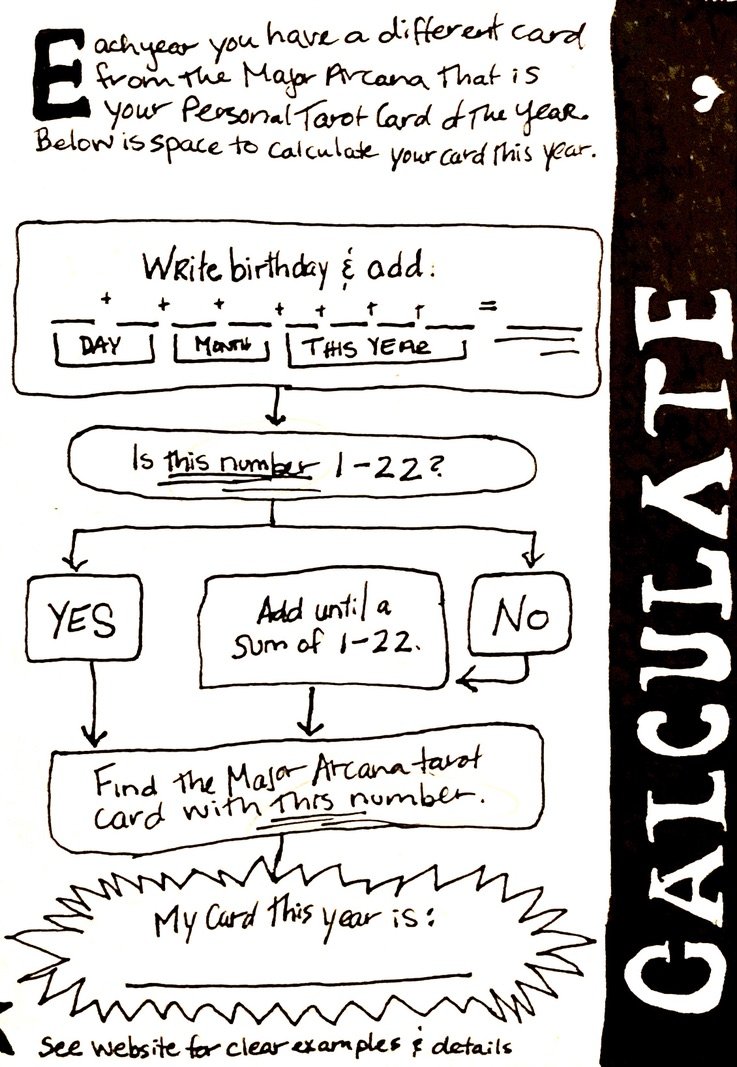 Each year you have a different card
from the Major Arcana that is
your Personal Tarot Card of the Year.
Below is space to calculate your card this year.
Write birthday & add:
__ + __ + __ + __ + __ + __ + __ + __ = ____
DAY MONTH THIS YEAR
Is this number 1-22?
YES
Add until a
sum of 1-22.
NO
Find the Major Arcana tarot
card with this number.
My Card this year is:
See website for clear examples & details
CALCULATE